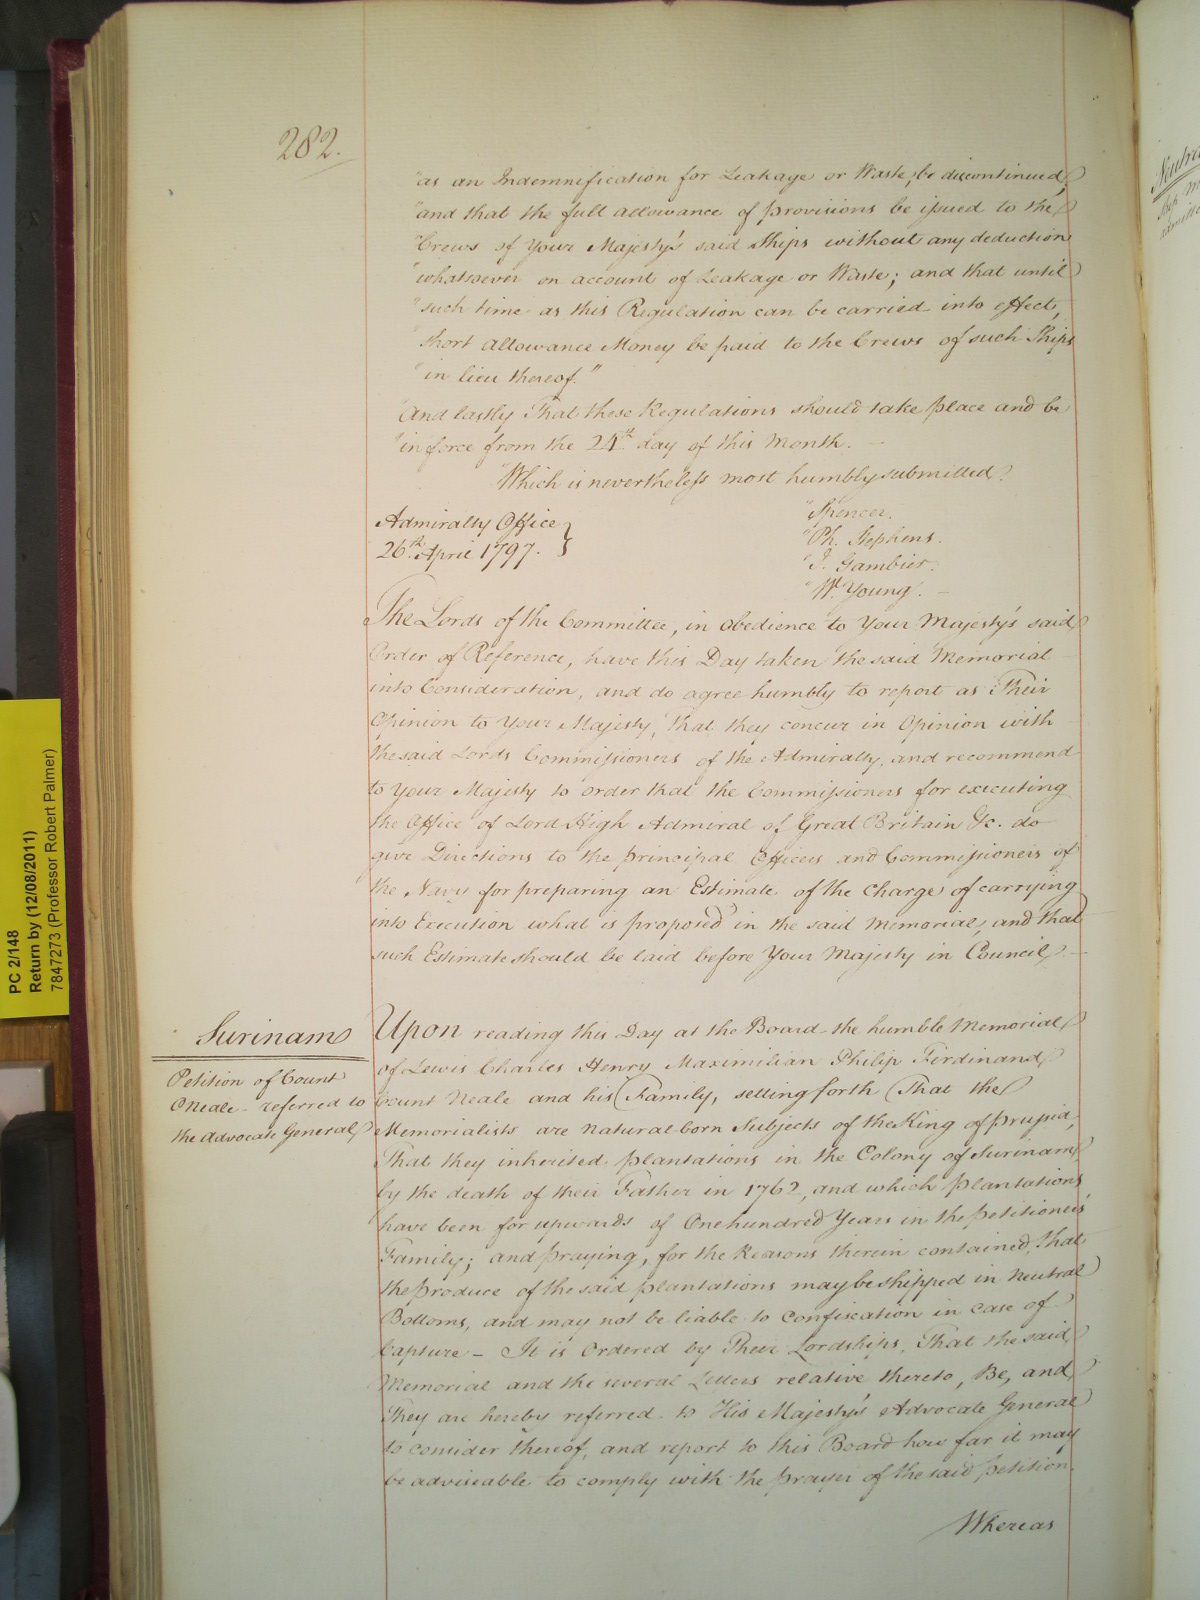 282.
"as an Indemnification for Leakage or Waste, be discontinued,
"and that the full allowance of provisions be issued to the
"Crews of Your Majesty's said Ships without any deduction
"whatsoever on account of Leakage or Waste; and that until
"such time as this Regulation can be carried into effect,
"short allowance Money be paid to the Crews of such Ships
"in lieu thereof."
"And lastly That these Regulations should take place and be
"in force from the 24th day of this Month.
"Which is nevertheless most humbly submitted.
Admiralty Office
26th April 1797.
"Spencer.
"Ph. Stephens.
"J. Gambier.
"W. Young.
The Lords of the Committee, in obedience to Your Majesty's said
Order of Reference, have this Day taken the said Memorial
into Consideration, and do agree humbly to report as Their
Opinion to Your Majesty, That they concur in Opinion with
the said Lords Commissioners of the Admiralty, and recommend
to Your Majesty to order that the Commissioners for executing
the Office of Lord High Admiral of Great Britain &c. do
give Directions to the principal Officers and Commissioners of
the Navy for preparing an Estimate of the Charge of carrying
into Execution what is proposed in the said Memorial, and that
such Estimate should be laid before Your Majesty in Council.
Surinam
Petition of Count
ONeale - referred to
the Advocate General
Upon reading this Day at the Board the humble Memorial
of Lewis Charles Henry Maximilian Philip Ferdinand
Count Neale and his Family, setting forth That the
Memorialists are natural-born Subjects of the King of Prussia,
That they inherited plantations in the Colony of Surinam
by the death of their Father in 1762, and which plantations
have been for upwards of One hundred Years in the petitioners
Family; and praying, for the Reasons therein contained, that
the produce of the said plantations may be shipped in Neutral
Bottoms, and may not be liable to Confiscation in case of
Capture - It is Ordered by Their Lordships, That the said
Memorial and the several Letters relative thereto, Be, and
They are hereby referred to His Majesty's Advocate General
to consider thereof, and report to this Board how far it may
be adviseable to comply with the prayer of the said petition.
Whereas
PC 2/148
Return by (12/08/2011)
7847273 (Professor Robert Palmer)